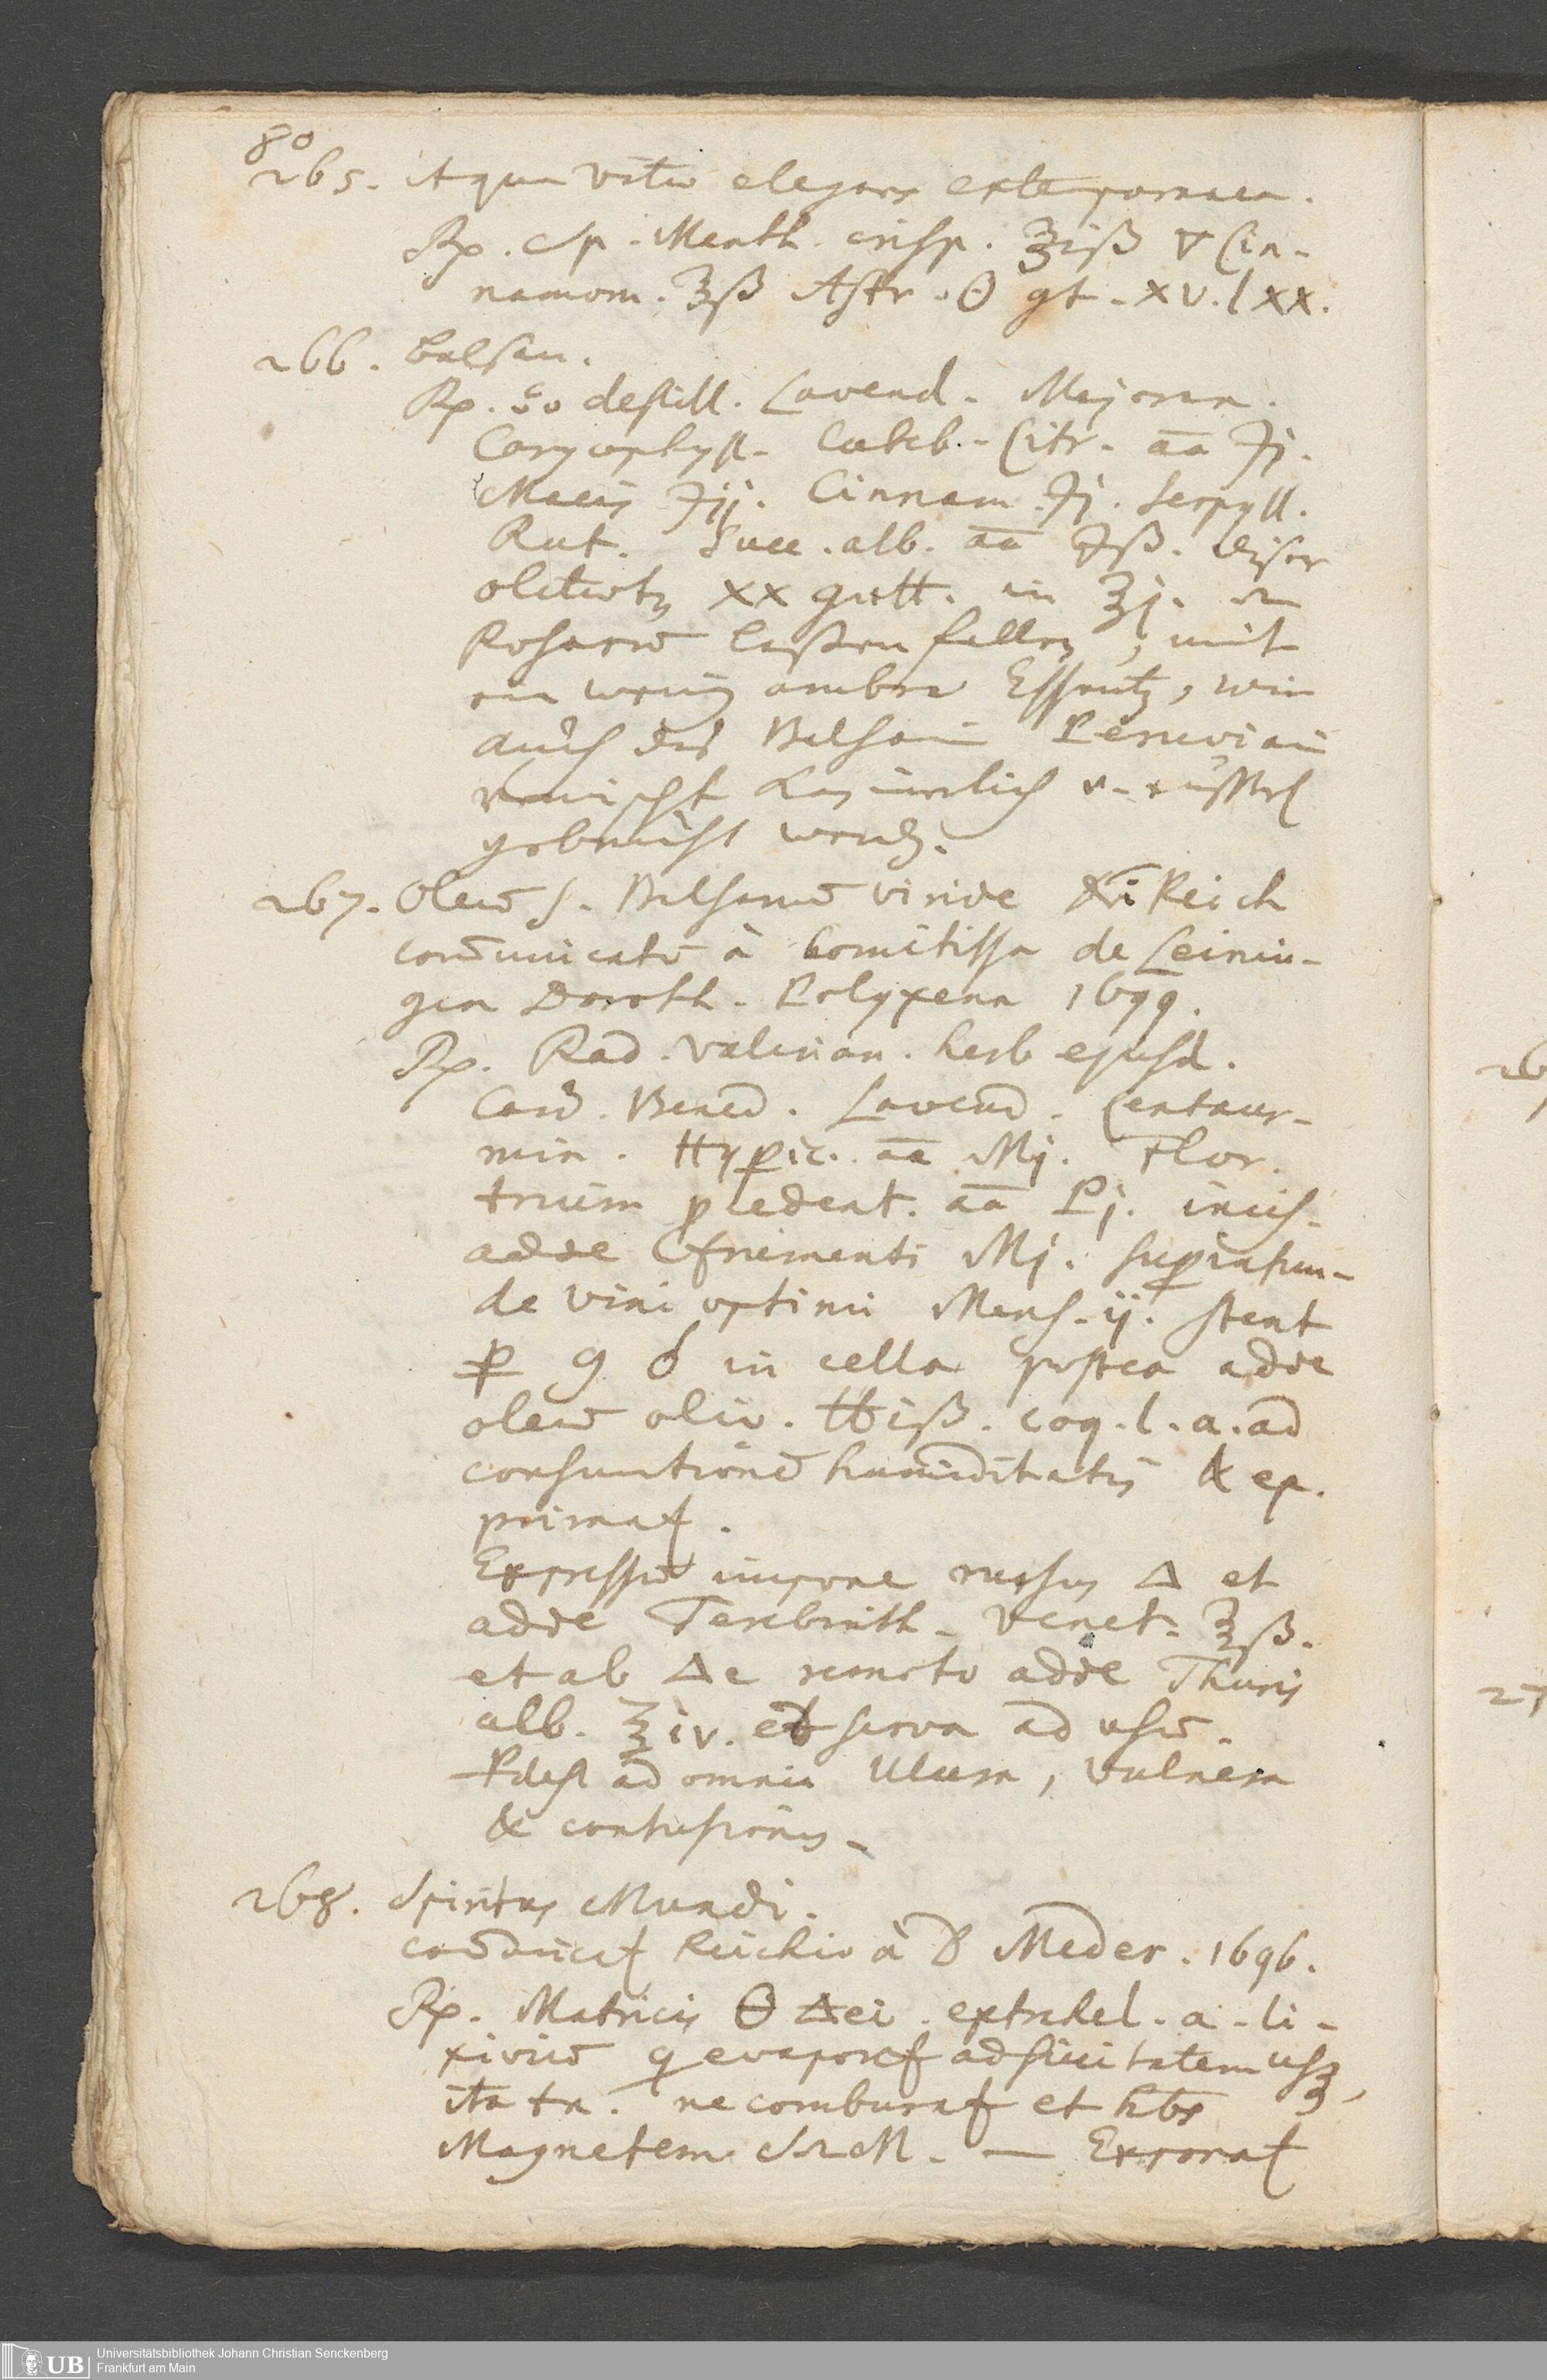 80
265. Aqua Vitae elegans extemporanea.
Rp. Sp. Menth. crisp. ℥iß 🜄 Cin-
namom. ℥ß Astr. 🜔 gt. XV. l XX.
266. Balsam.
Rp. destill. Lavend. Majoran.
Caryophyll. Cubeb. Citr. āā ʒj.
Macis ʒij. Cinnam. ʒj. Serpyll.
Rut. Succ. alb. āā ʒß. dieser
olitetn XX gutt. in ℥j.
Rosarū lassen fallen, mit
ein wenig ambra Essentz, wie
auch des Balsami Peruviani
vermischt kan innerlich u. eusserl
gebraucht werden.
267. Oleū s. Balsamū viride Reich
com̄unicatū à Comitissa de Leinin-
gen Doroth. Polyxena 1699.
Rp. Rad. Valerian. herb ejusd.
Card. Bened. Lavend. Centaur.
min. Hyperic. āā Mj. Flor.
trium praecedent. āā Pj. incis.
adde Mj. superinfun-
de Vini optimi Mens. ij. stent
per 9 in cella postea adde
oleū oliv. ℔iß. coq. l. a. ad
consumtionē humiditatis & ex-
primat.
Expressū impone rursus 🜂 et
adde Terebinth. Venet. ℥ß.
et ab 🜂e remoto adde Thuris
alb. ℥iv. et serva ad usū.
Pdest ad omnia Ulcera, Vulnera
& contusiones.
268. Spiritus Mundi.
com̄unicat Reichio à D Meder. 1696.
Rp. Matricis 🜔 ei. extrahe l. a. li-
xiviū q evaporet ad siccitatem usqꝫ,
ita tn. ne comburat et hbs
Magnetem S M. — Exponat
Universitätsbibliothek Johann Christian Senckenberg
Frankfurt am Main
UB
26
27